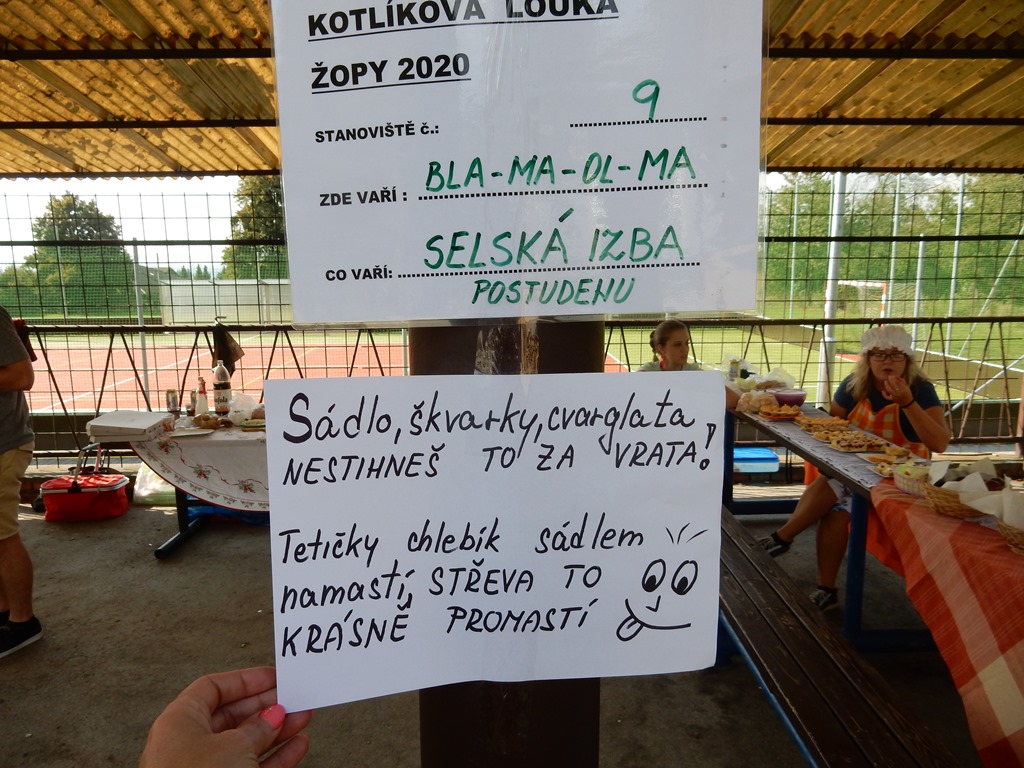 KOTLÍKOVÁ LOUKA
ŽOPY 2020
STANOVIŠTĚ č.: 9
ZDE VAŘÍ : BLA-MA-OL-MA
CO VAŘÍ: SELSKÁ IZBA
POSTUDENU
Sádlo, škvarky, cvarglata
NESTIHNEŠ TO ZA VRATA!
Tetičky chlebík sádlem
namastí, STŘEVA TO
KRÁSNĚ PROMASTÍ